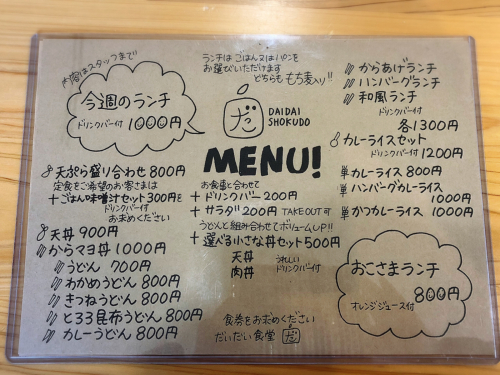 内容はスタッフまで
今週のランチ
ドリンクバー付 1000円
ランチは ごはん又はパンを
お選びいただけます
どちらも もち麦入り!!
だ
DAIDAI
SHOKUDO
MENU!
からあげランチ
ハンバーグランチ
和風ランチ
ドリンクバー付
各1300円
カレーライスセット
ドリンクバー付 1200円
単 カレーライス 800円
単 ハンバーグカレーライス
1000円
単 かつカレーライス 1000円
天ぷら盛り合わせ 800円
定食をご希望のお客さまは
+ごはん味噌汁セット300円を
ドリンクバー付
お求めください
天丼 900円
からマヨ丼 1000円
うどん 700円
わかめうどん 800円
きつねうどん 800円
とろろ昆布うどん 800円
カレーうどん 800円
お食事と合わせて
+ ドリンクバー 200円
+ サラダ 200円 TAKE OUT可
うどんと組み合わせてボリュームUP!!
+ 選べる小さな丼セット500円
天丼
肉丼
うれしい
ドリンクバー付
食券をお求めください
だいだい食堂 だ
おこさまランチ
800円
オレンジジュース付